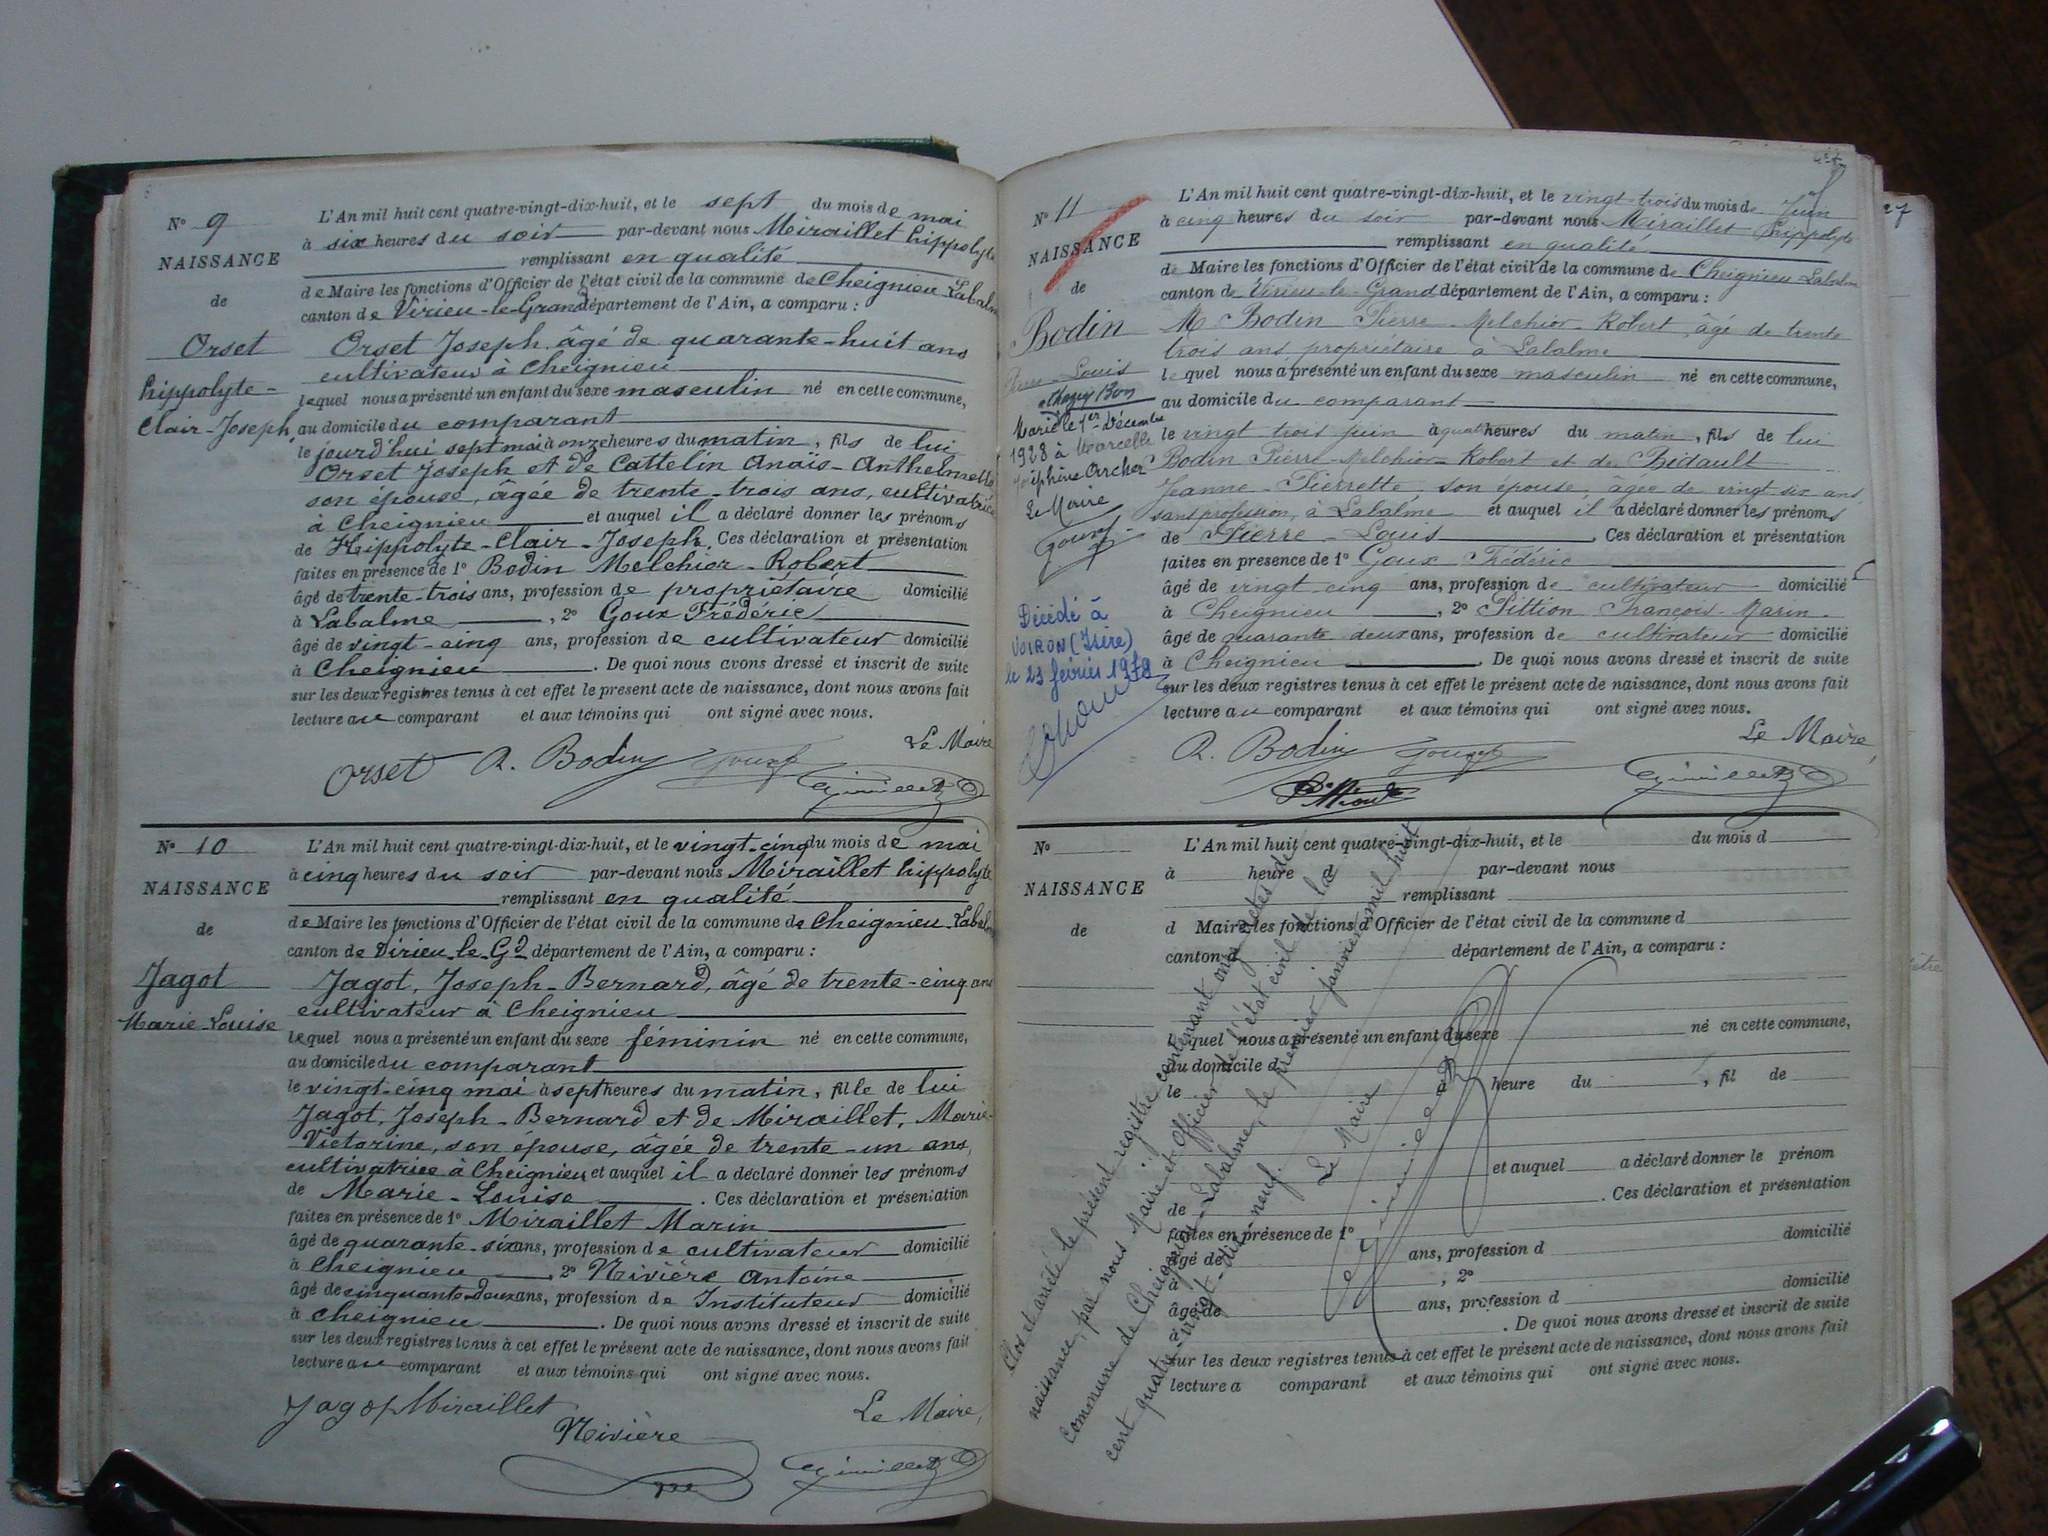 N° 9
NAISSANCE
de
Orset
Hippolyte-
Clair-Joseph
L'An mil huit cent quatre-vingt-dix-huit, et le sept du mois de mai
à six heures du soir par-devant nous Miraillet Hippolyte
remplissant en qualité
de Maire les fonctions d'Officier de l'état civil de la commune de Cheignieu-Labalme
canton de Virieu-le-Grand département de l'Ain, a comparu :
Orset Joseph âgé de quarante-huit ans
cultivateur à Cheignieu
lequel nous a présenté un enfant du sexe masculin né en cette commune,
au domicile du comparant
le jourd'hui sept mai à onze heures du matin, fils de lui
Orset Joseph et de Cattelin Anaïs-Anthelmette
son épouse, âgée de trente-trois ans, cultivatrice
à Cheignieu et auquel il a déclaré donner les prénoms
de Hippolyte-Clair-Joseph. Ces déclaration et présentation
faites en présence de 1° Bodin Melchior-Robert
âgé de trente-trois ans, profession de propriétaire domicilié
à Labalme, 2° Goux Frédéric
âgé de vingt-cinq ans, profession de cultivateur domicilié
à Cheignieu. De quoi nous avons dressé et inscrit de suite
sur les deux registres tenus à cet effet le present acte de naissance, dont nous avons fait
lecture au comparant et aux témoins qui ont signé avec nous.
Le Maire
Orset R. Bodin
N° 10
NAISSANCE
de
Jagot
Marie-Louise
L'An mil huit cent quatre-vingt-dix-huit, et le vingt-cinq du mois de mai
à cinq heures du soir par-devant nous Miraillet Hippolyte
remplissant en qualité
de Maire les fonctions d'Officier de l'état civil de la commune de Cheignieu-Labalme
canton de Virieu-le-Gd département de l'Ain, a comparu :
Jagot, Joseph-Bernard, âgé de trente-cinq ans
cultivateur à Cheignieu
lequel nous a présenté un enfant du sexe féminin né en cette commune,
au domicile du comparant
le vingt-cinq mai à sept heures du matin, fille de lui
Jagot, Joseph-Bernard et de Miraillet, Marie-
Victorine, son épouse, âgée de trente-un ans,
cultivatrice à Cheignieu et auquel il a déclaré donner les prénoms
de Marie-Louise. Ces déclaration et présentation
faites en présence de 1° Miraillet Marin
âgé de quarante-six ans, profession de cultivateur domicilié
à Cheignieu, 2° Nivière Antoine
âgé de cinquante-deux ans, profession de Instituteur domicilié
à Cheignieu. De quoi nous avons dressé et inscrit de suite
sur les deux registres tenus à cet effet le présent acte de naissance, dont nous avons fait
lecture au comparant et aux témoins qui ont signé avec nous.
Jagot Miraillet Le Maire,
Nivière
N° 11
NAISSANCE
de
Bodin
Louis
Marié le 1er Décembre
1928 à Marcelle
Joséphine Archer
Le Maire
Décédé à
VOIRON (Isère)
le 23 février
L'An mil huit cent quatre-vingt-dix-huit, et le vingt-trois du mois de Juin
à cinq heures du soir par-devant nous Miraillet Hippolyte
remplissant en qualité
de Maire les fonctions d'Officier de l'état civil de la commune de Cheignieu-Labalme
canton de Virieu-le-Grand département de l'Ain, a comparu :
M. Bodin Pierre-Melchior-Robert, âgé de trente
trois ans propriétaire à Labalme
lequel nous a présenté un enfant du sexe masculin né en cette commune,
au domicile du comparant
le vingt trois juin à quatre heures du matin, fils de lui
Bodin Pierre-Melchior-Robert et de Bidault
Jeanne-Pierrette, son épouse, âgée de vingt six ans,
sans profession, à Labalme et auquel il a déclaré donner les prénoms
de Pierre-Louis. Ces déclaration et présentation
faites en presence de 1° Goux Frédéric
âgé de vingt cinq ans, profession de cultivateur domicilié
à Cheignieu, 2° Pittion François-Marin
âgé de quarante deux ans, profession de cultivateur domicilié
à Cheignieu. De quoi nous avons dressé et inscrit de suite
sur les deux registres tenus à cet effet le présent acte de naissance, dont nous avons fait
lecture au comparant et aux témoins qui ont signé avec nous.
Le Maire
R. Bodin
N°
NAISSANCE
de
L'An mil huit cent quatre-vingt-dix-huit, et le du mois d
à heure d par-devant nous
remplissant
d Maire les fonctions d'Officier de l'état civil de la commune d
canton d département de l'Ain, a comparu :
lequel nous a présenté un enfant du sexe né en cette commune,
au domicile d
le à heure du , fil de
et auquel a déclaré donner le prénom
de . Ces déclaration et présentation
faites en présence de 1°
âgé de ans, profession d domicilié
à , 2°
âgé de ans, profession d domicilié
à . De quoi nous avons dressé et inscrit de suite
sur les deux registres tenus à cet effet le présent acte de naissance, dont nous avons fait
lecture a comparant et aux témoins qui ont signé avec nous.
Clos et arrêté le présent registre contenant onze actes de
naissance, par nous Maire et Officier de l'état civil de la
commune de Cheignieu-Labalme, le premier janvier mil huit
cent quatre-vingt-dix-neuf.
Le Maire
27